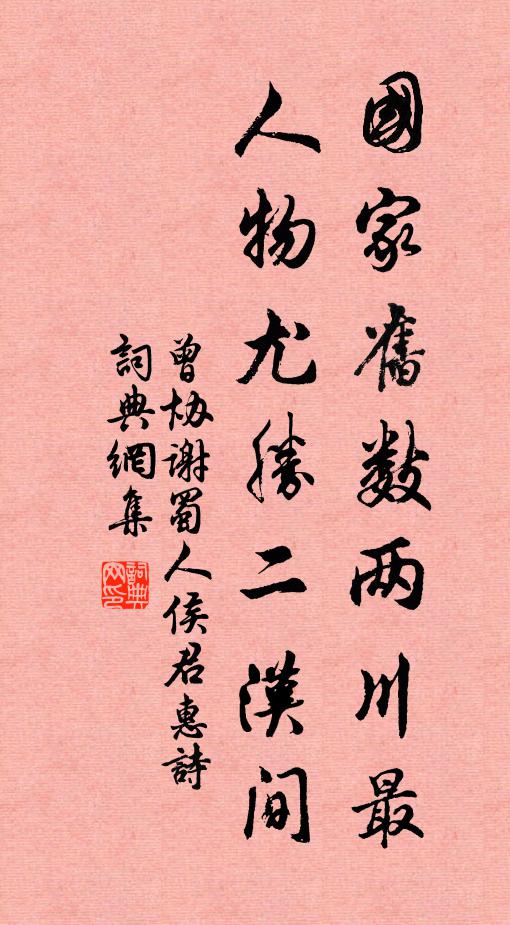 國家舊数两川最
人物尤勝二漢间
曾协谢蜀人侯君惠詩
詞典網集
詞典网印